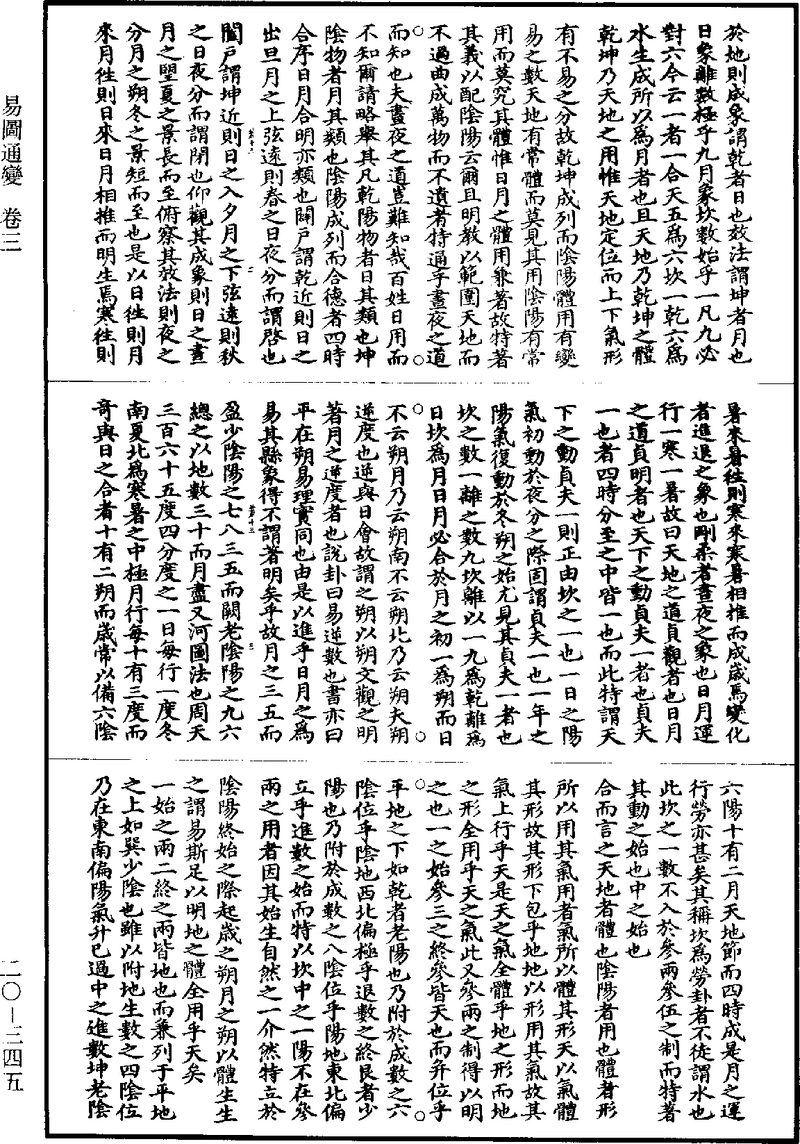 易圖通變　卷三
於地則成象謂乾者日也效法謂坤者月也
日象離數極乎九月象坎數始乎一凡九必
對六今云一者一合天五爲六坎一乾六爲
水生成所以爲月者也且天地乃乾坤之體
乾坤乃天地之用惟天地定位而上下氣形
有不易之分故乾坤成列而陰陽體用有變
易之數天地有常體而莫見其用陰陽有常
用而莫究其體惟日月之體用兼著故特著
其義以配陰陽云爾且明教以範圍天地而
不過曲成萬物而不遺者特通乎晝夜之道
而知也夫晝夜之道豈難知哉百姓日用而
不知爾請略舉其凡乾陽物者日其類也坤
陰物者月其類也陰陽成列而合德者四時
合序日月合明亦類也闢戶謂乾近則日之
出旦月之上弦遠則春之日夜分而謂啓也
闔戶謂坤近則日之入夕月之下弦遠則秋
之日夜分而謂閉也仰觀其成象則日之晝
月之朢夏之景長而至俯察其效法則夜之
分月之朔冬之景短而至也是以日徃則月
來月徃則日來日月相推而明生焉寒徃則
暑來暑徃則寒來寒暑相推而成歲焉變化
者進退之象也剛柔者晝夜之象也日月運
行一寒一暑故曰天地之道貞觀者也日月
之道貞明者也天下之動貞夫一者也貞夫
一也者四時分至之中皆一也而此特謂天
下之動貞夫一則正由坎之一也一日之陽
氣初動於夜分之際固謂貞夫一也一年之
陽氣復動於冬朔之始尤見其貞夫一者也
坎之數一離之數九坎離以一九爲乾離爲
日坎爲月日月必合於月之初一爲朔而日
不云朔月乃云朔南不云朔北乃云朔夫朔
逆度也逆與日會故謂之朔以朔文觀之明
著月之逆度者也說卦曰易逆數也書亦曰
平在朔易理實同也由是以進乎日月之爲
易其縣象得不謂著明矣乎故月之三五而
盈少陰陽之七八三五而闕老陰陽之九六
總之以地數三十而月盡又河圖法也周天
三百六十五度四分度之一日每行一度冬
南夏北爲寒暑之中極月行每十有三度而
竒與日之合者十有二朔而歲常以備六陰
六陽十有二月天地節而四時成是月之運
行勞亦甚矣其稱坎爲勞卦者不徒謂水也
此坎之一數不入於參兩參伍之制而特著
其動之始也中之始也
合而言之天地者體也陰陽者用也體者形
所以用其氣用者氣所以體其形天以氣體
其形故其形下包乎地地以形用其氣故其
氣上行乎天是天之氣全體乎地之形而地
之形全用乎天之氣此又參兩之制得以明
之也一之始參三之終參皆天也而弁位乎
平地之下如乾者老陽也乃附於成數之六
陰位乎陰地西北偏極乎退數之終艮者少
陽也乃附於成數之八陰位乎陽地東北偏
立乎進數之始而特以坎中之一陽不在參
兩之用者因其始生自然之一介然特立於
陰陽終始之際起歲之朔月之朔以體生生
之謂易斯足以明地之體全用乎天矣
一始之兩二終之兩皆地也而兼列于平地
之上如巽少陰也雖以附地生數之四陰位
乃在東南偏陽氣升已過中之進數坤老陰
二〇—三四五